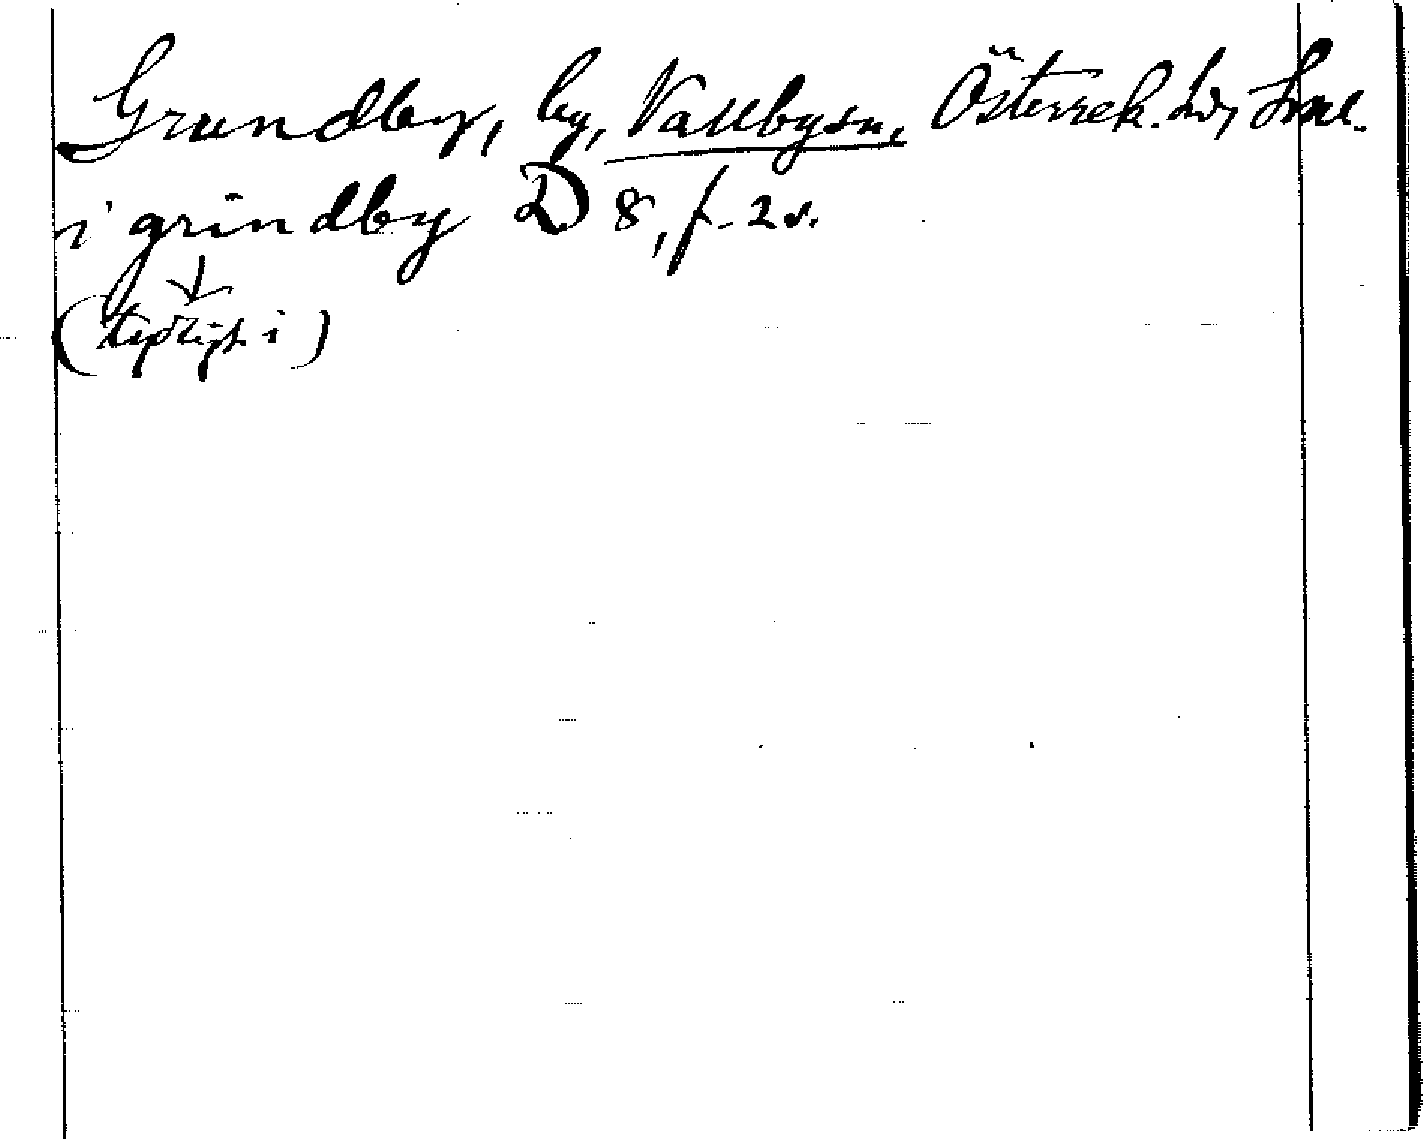 Grundby, by, Vallbysn, Österrek. hd, Sml.
i grindby D 8, f. 2 v.
(tydligt i)